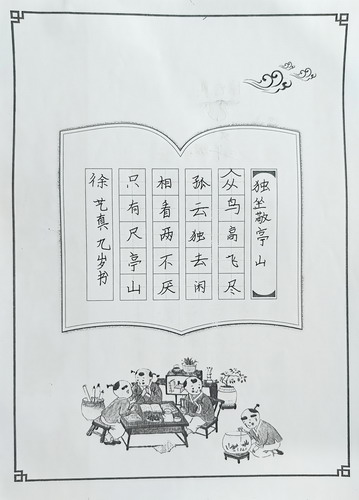 独坐敬亭山
众鸟高飞尽
孤云独去闲
相看两不厌
只有尺亭山
徐艺真九岁书